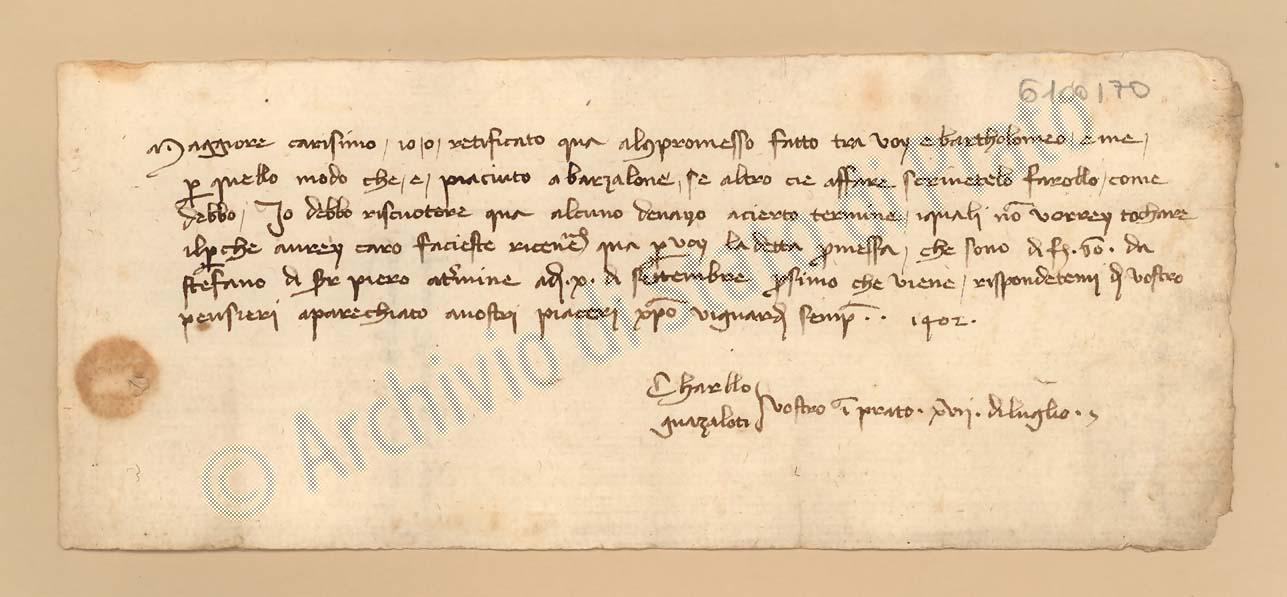 6100170
Maggiore carisimo, io, o, retificato qua al chpromesso fatto tra voy e bartholomeo, e me,
p quello modo che, e, piaciuto a barzalone, se altro cie affare scrivetelo farollo, come
debbo, Io debbo riscuotere qua alcuno denayo a cierto termine, i quali nō vorrey tochare
il pche aurey caro facieste ricevere qua p voy la detta pmessa, che sono di f. 50. da
stefano di ser piero a tmine adi .x. di settembre psimo che viene, rispondetemi di vostro
pensieri aparechiato a vostri piaceri xpo vi guardi semp .. 1402.
Charllo
guazaloti
vostro ī prato. xvii. di luglio.
© Archivio di Stato di Prato